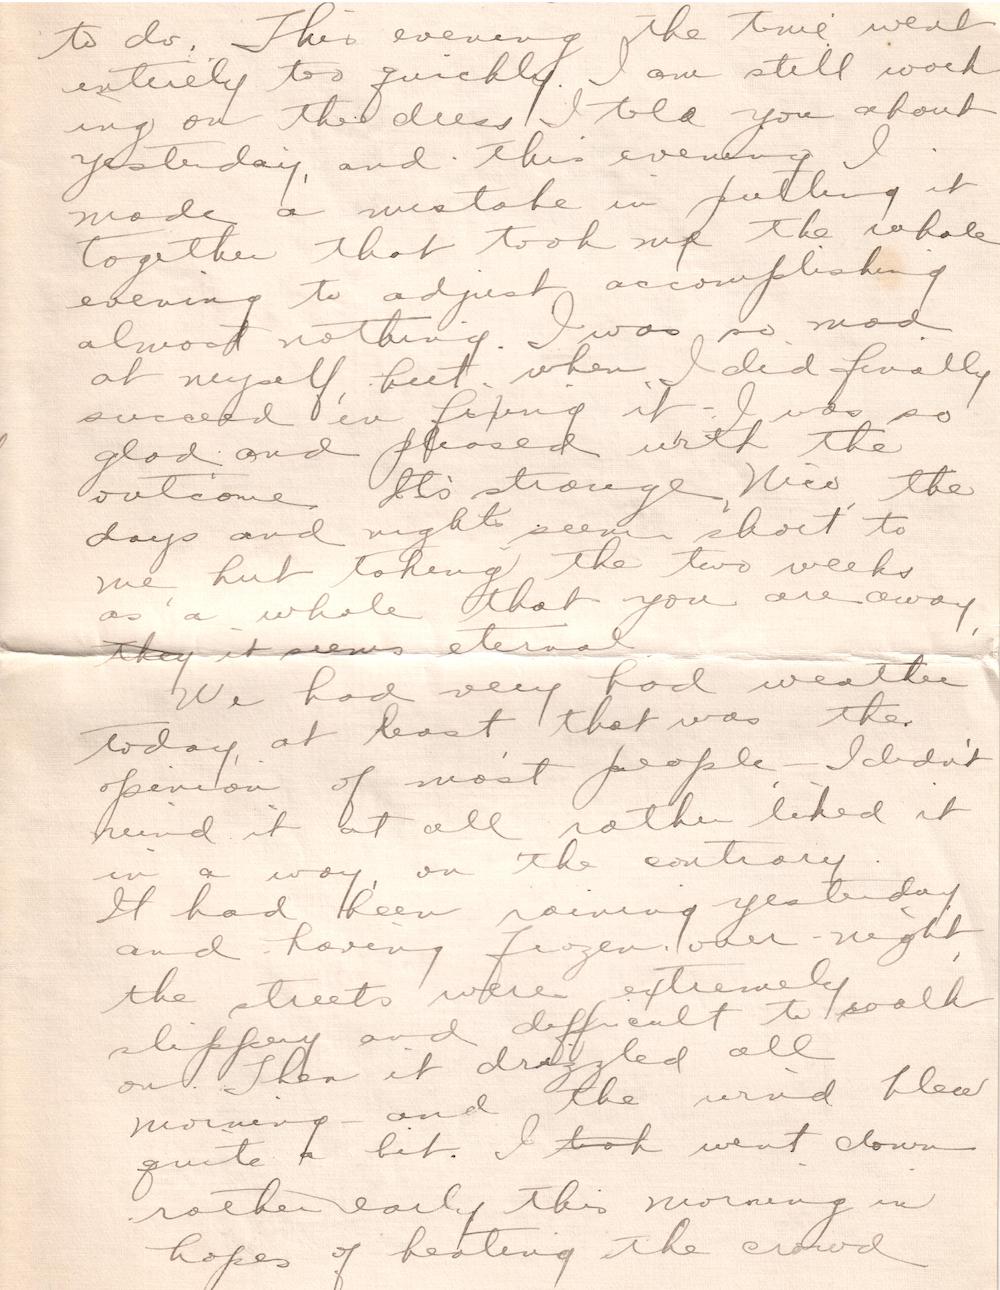 to do. This evening the time went
entirely too quickly. I am still work
ing on the dress I told you about
yesterday, and this evening I
made a mistake in putting it
together that took me the whole
evening to adjust accomplishing
almost nothing. I was so mad
at myself, but when I did finally
succeed in fixing it - I was so
glad and pleased with the
outcome. It's strange, Nico, the
days and nights seem short to
me, but taking the two weeks
as a whole that you are away,
they it seems eternal
We had very bad weather
today, at least that was the
opinion of most people - I didn't
mind it at all rather liked it
in a way, on the contrary.
It had been raining yesterday
and having frozen over-night,
the streets were extremely
slippery and difficult to walk
on. Then it drizzled all
morning - and the wind blew
quite a bit. I took went down
rather early this morning in
hopes of beating the crowd